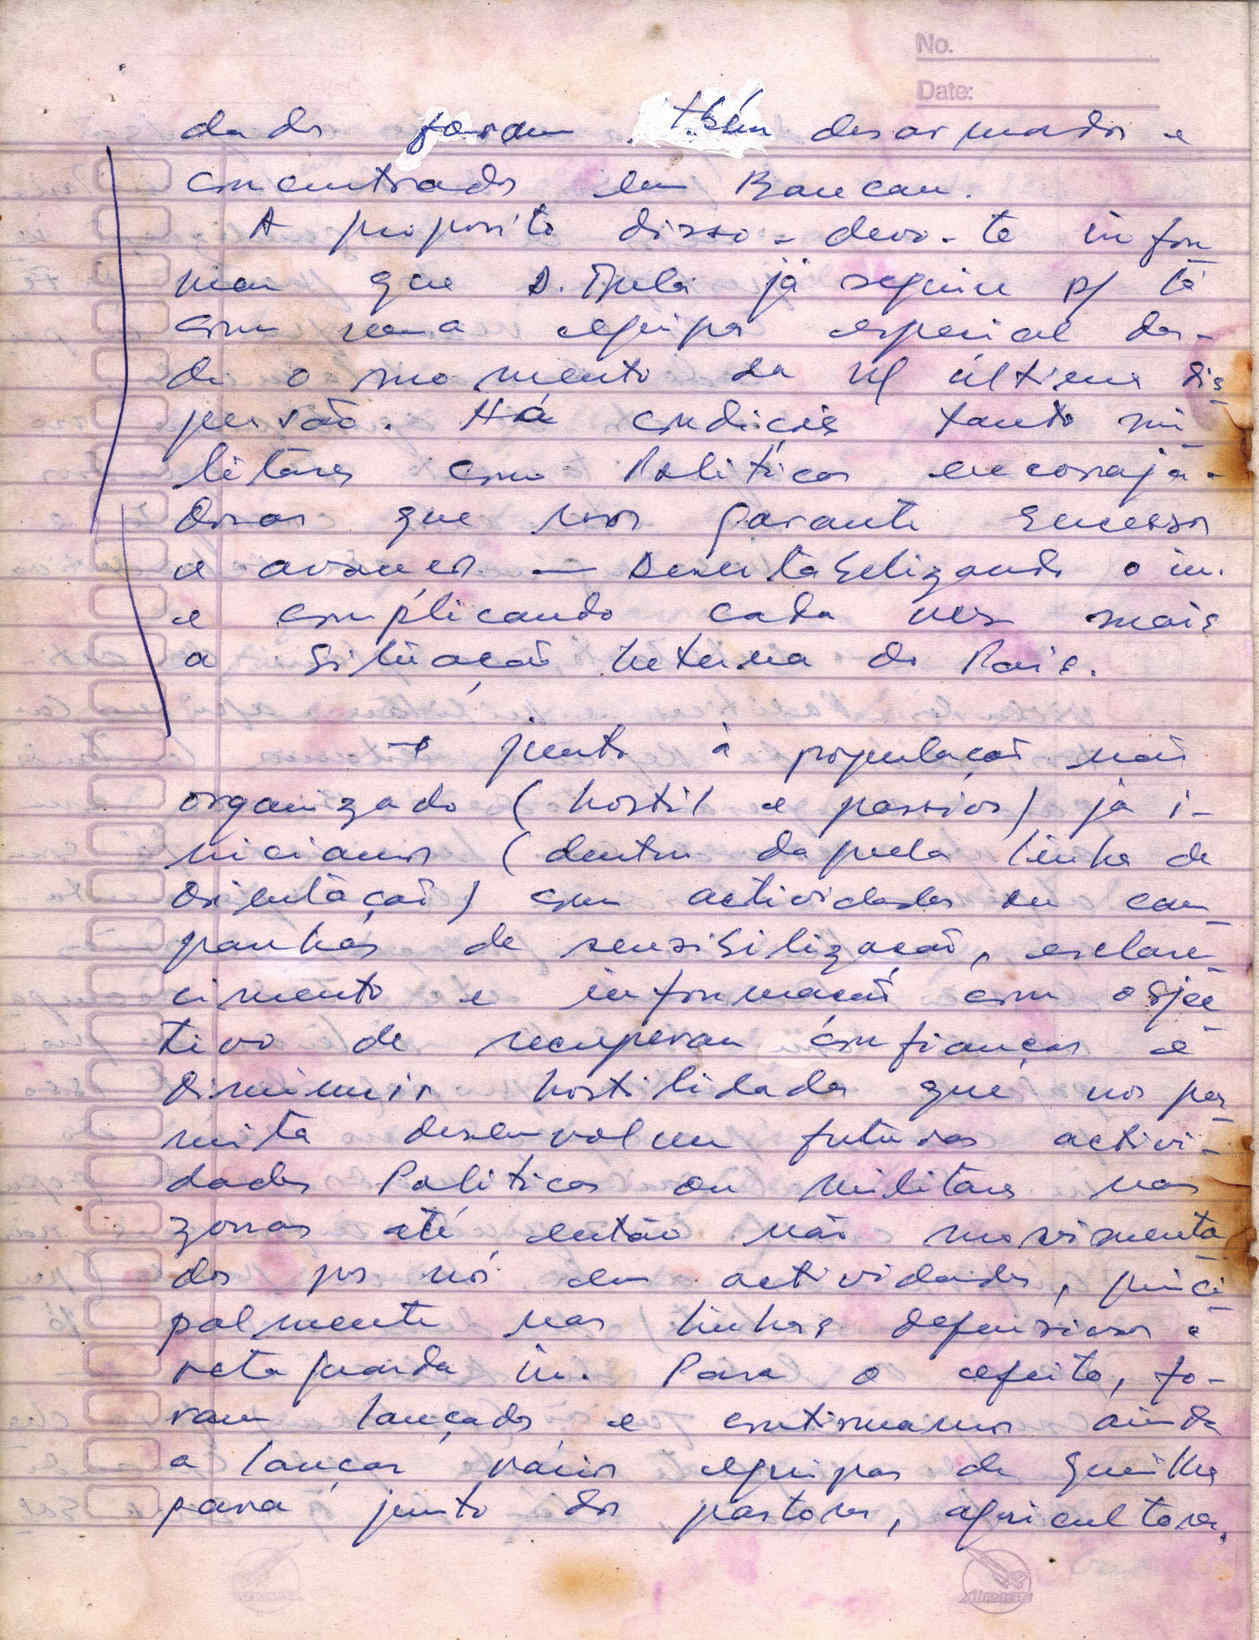 No.
Date:
dado foram tbém desarmados e
concentrados em Baucau.
A propósito disso - devo-te infor
mar que D. Mula já seguiu p/ lá
com uma equipa especial des-
de o momento da n/ última dis
persão. Há condições tanto mi
litares como Políticas encoraja-
doras que nos garante sucessos
e avanços — Desestabilizando o in.
e complicando cada vez mais
a situação interna do País.
→ junto à população não
organizado (hostil e passivos) já i-
niciamos (dentro daquela linha de
orientação) com actividades ou cam
panhas de sensibilização, esclare
cimento e informação com objec
tivo de recuperar confianças e
diminuir hostilidades que nos per
mita desenvolver futuras activi-
dades Políticas ou militares nas
zonas até então não movimenta
dos por nós em actividades, princi
palmente nas linhas defensivas e
retaguarda in. Para o efeito, fo-
ram lançados e continuamos ainda
a lançar vários equipas de guerrilha
para junto dos pastores, agricultores,